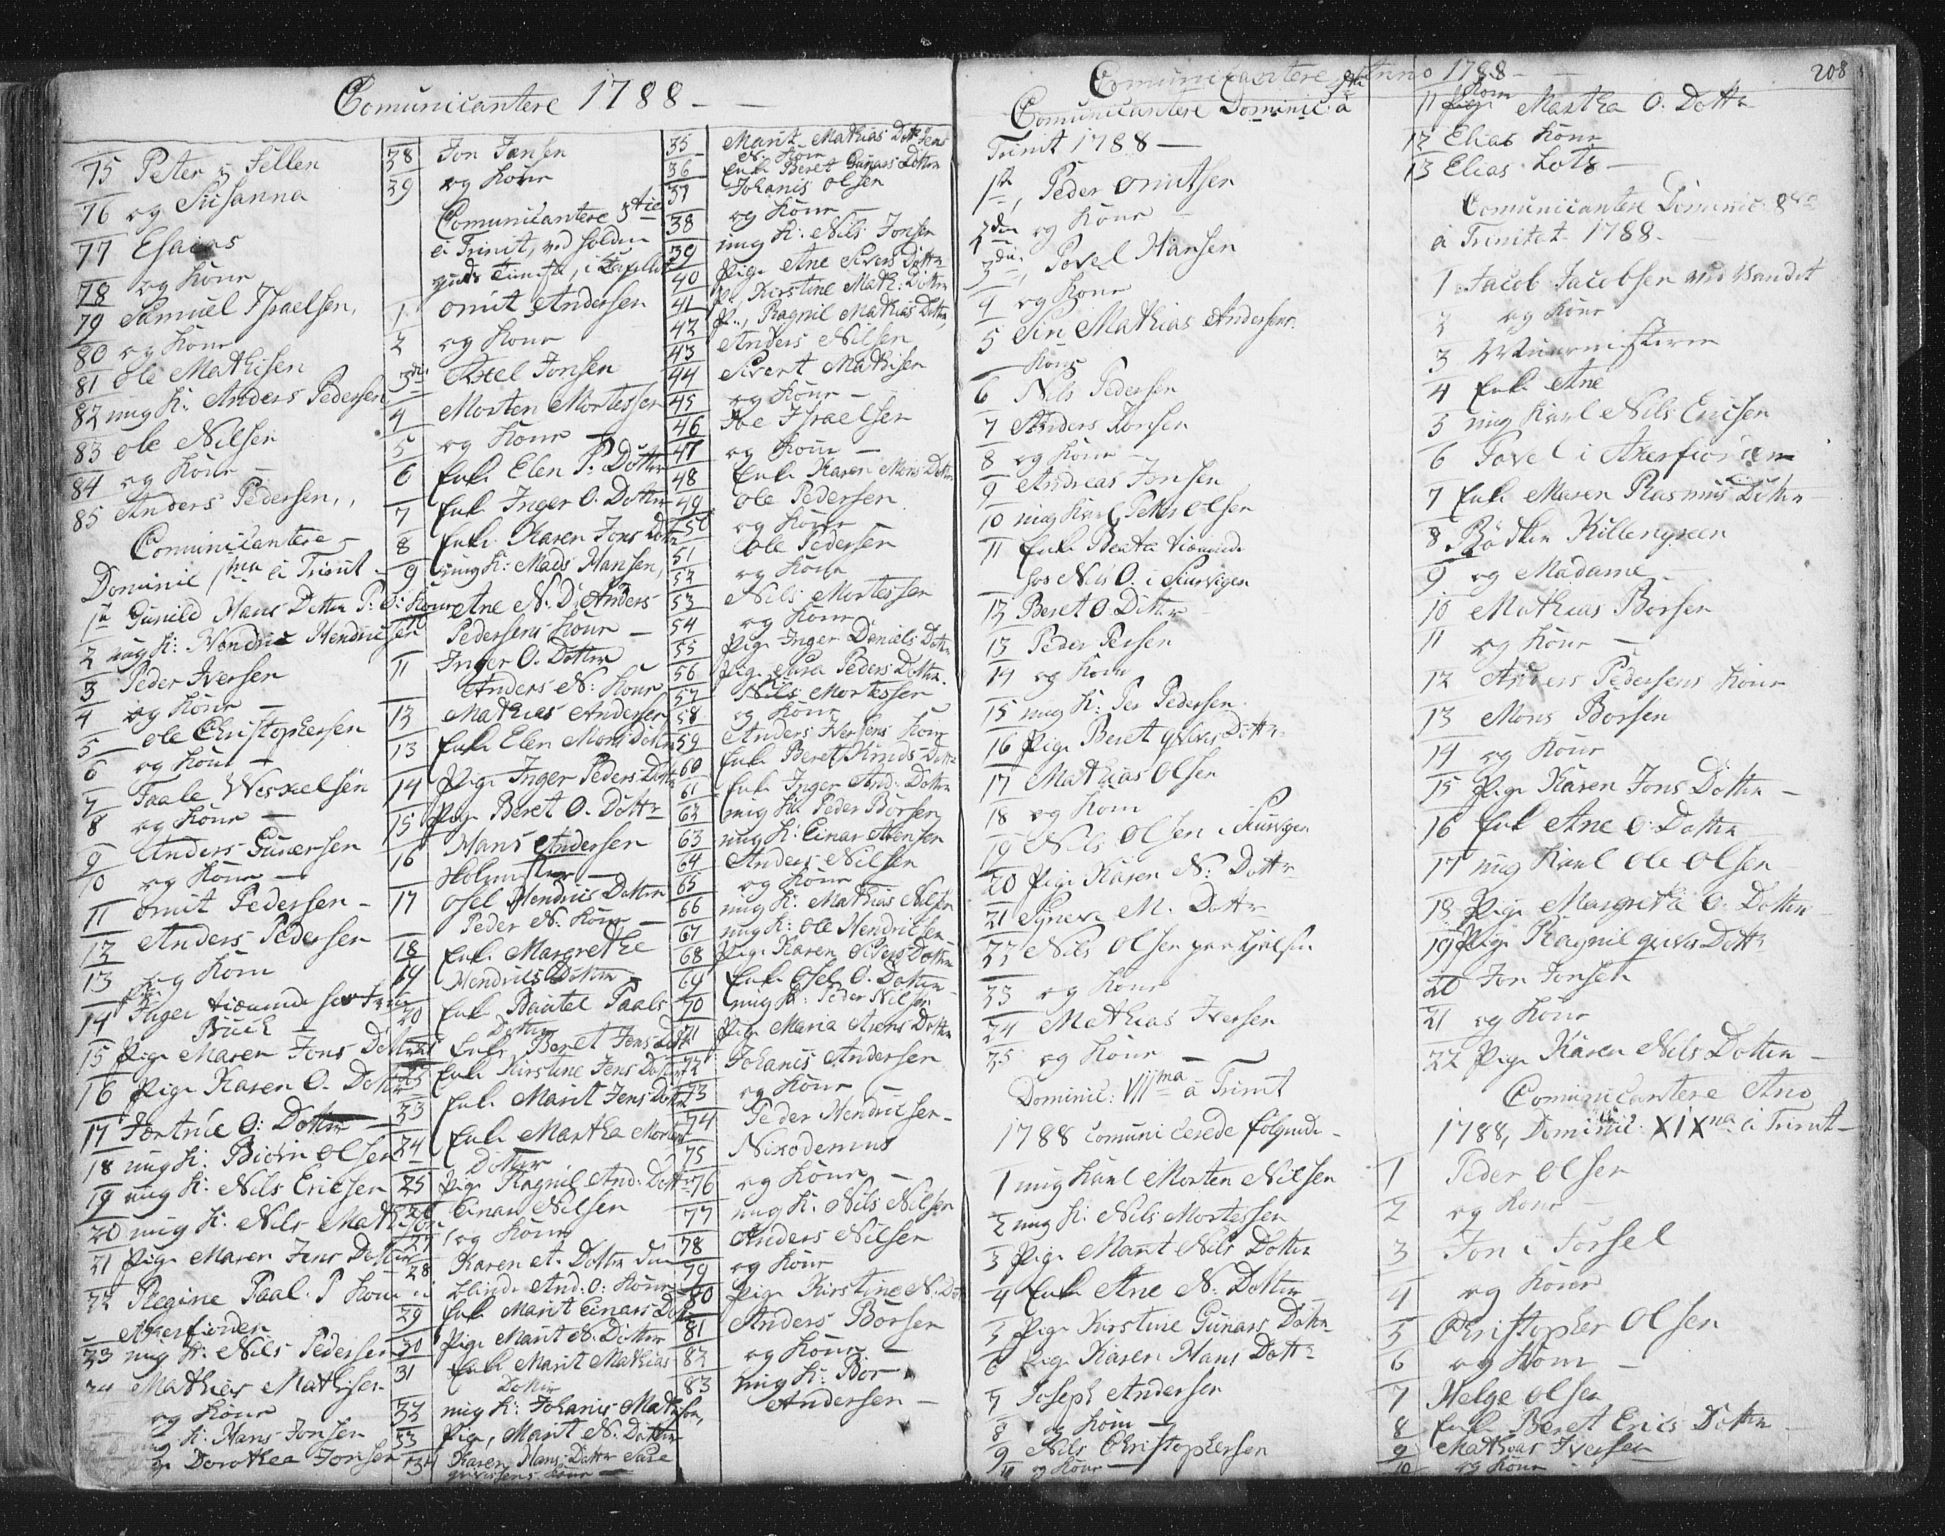 Comunicantere 1788 -
75 Peter Fellen
76 og Susanna
77 Esaias
78 og Kone
79 Samuel Israelsen,
80 og Kone
81 Ole Mathisen
82 ung K: Anders Pedersen
83 Ole Nilsen
84 og Kone -
85 Anders Pedersen,,
Comunicantere
Dominic 1ma à Trinit -
1te Gunild Hans Dotter P: O: Kone
2 ung K: Hendric Hendricsen
3 Peder Iversen
4 og Kone -
5 Ole Christophersen
6 og Kone -
7 Faale Wexelsen
8 og Kone -
9 Anders Gunersen
10 og Kone -
11 Omit Pedersen -
12 Anders Pedersen
13 og Kone
14 Inger tienende hos
Buch -
15 Pige Maren Jons Dotter
16 Pige Karen O. Dotter
17 Jertrue O: Dotter
18 ung K: Biörn Olsen
19 ung K: Nils Ericsen
20 ung K: Nils Mathisen
21 Pige Maren Jens Dotter
22 Regine Paal. P Kone i
Akerfiorden
23 ung K: Nils Pedersen
24 Mathias Mathisen
og Kone
K: Hans Jonsen
Dorothea Jonsen
38 Jon Jansen
39 og Kone
Comunicantere 5tie
à Trinit, ved holden
guds tieniste, i Capellet
1 Omit Andersen
2 og Kone
3die Axel Jonsen
4 Morten Mortessen
5 og Kone -
6 Enke Elen P. Dotter
7 Enke Inger O. Dotter
8 Enke Karen Jons Dotter
9 ung K: Mads Hansen,
10 Ane N. D: Anders
Pedersens Kone -
11 Inger O. Dotter
Anders N: Kone
12 Mathias Andersen
13 Enke Elen Mons Dotter
14 Pige Inger Peders Dotter
15 Pige Beret O. Dotter
16 Hans Andersen
Holmester -
17 Osel Hendrics Dotter
Peder N. Kone -
18 Enke Margrethe
19 Hendrics Dotter
20 Enke Paals
Dotter
Enke Beret Jens Dotter
Enke Kirstine Jens Dotter
23 Enke Marit Jens Dotter
24 Enke Martha Morten
Dotter
25 Pige Ragnil And: Dotter
26 Einar Nilsen
27 og Kone
28 Karen A. Dotter den
blinde And: O: Kone
29 Enke Marit Einars Dotter
30 Pige Marit N. Dotter
31 Enke Marit Mathias
Dotter
32 ung K: Johanis Mathisen,
33 Pige, Marit N. Dotter
34 Karen Hans Dotter
Kone -
35 Marit Mathias Dotter
N. Kone
36 Enke Beret Gunars Dotter
37 Johanis Olsen
38 og Kone -
39 ung K: Nils Jonsen
40 Pige Ane Sivers Dotter
41 P: Kirstine Math: Dotter
42 P:, Ragnil Mathias Dotter,
43 Anders Nilsen
44 Sivert Mathisen
45 og Kone -
46 Israelsen
47 og Kone -
48 Enke Karen Mons Dotter
49 Ole Pedersen
50 og Kone
51 Ole Pedersen
52 og Kone
53 Nils Mortessen
54 og Kone
55 Pige Inger Daniels Dotter
56 Pige Sura Peders Dotter.
57 Nils Mortessen
58 og Kone
59 Anders Iversens Kone
60 Enke Beret Knuds Dotter
61 Enke Inger And: Dotter
62 ung K: Peder Borsen
63 ung K: Einar Arensen
64 Anders Nilsen
65 og Kone
66 ung K: Mathias Nilsen
67 ung K: Ole Hendricsen
68 Pige Karen Sivers Dotter
69 Enke Osel O. Dotter
70 ung K: Peder Nilsen
71 Pige Maria Arens Dotter
72 Johanis Andersen
73 og Kone -
74 Peder Hendricsen -
75 Nicodemus
76 og Kone -
77 ung K: Nils Nilsen
78 Anders Nilsen
79 og Kone
80 Pige Kirstine N. Dotter
81 Anders Borsen
82 og Kone -
83 ung K: Bor
Andersen -
Comunicantere Anno 1788 -
208
Comunicantere Dominic: à
Trinit 1788 -
1te, Peder Omitsen
2den og Kone -
3die, Povel Hansen
4 og Kone
5 Siri Mathias Andersens
Kone
6 Nils Pedersen
7 Anders Jonsen
8 og Kone -
9 Andreas Jonsen
10 ung Karl Peter Olsen
11 Enke Beata tienende
hos Nils O. i Skurvigen
12 Beret O Dotter
13 Peder Persen
14 og Kone
15 ung K: Per Pedersen
16 Pige Beret Dotter
17 Mathias Olsen
18 og Kone
19 Nils Olsen i Skurvigen
20 Pige Karen N: Dotter
21 Syneva M. Dotter
22 Nils Olsen
23 og Kone
24 Mathias Iversen
25 og Kone -
Dominic: VIIma à Trinit
1788 comunicerede følgende -
1 ung Karl Morten Nilsen
2 ung K: Nils Mortessen
3 Pige Marit Nils Dotter
4 Enke Ane N: Dotter
5 Pige Kirstine Gunars Dotter
6 Pige Karen Hans Dotter
7 Joseph Andersen
8 og Kone -
9 Nils Christophersen
10 og Kone -
11 Pige Martha O: Dotter
12 Elias Kone
13 Elias Lots -
Comunicantere Dominic: 8va
à Trinitet 1788 -
1 Jacob Jacobsen ved Vandet
2 og Kone
3
4 Enke Ane
5 ung Karl Nils Ericsen
6 Povel i Akerfiorden
7 Enke Maren Rasmus Dotter
8 Bödker Killengreen
9 og Madame -
10 Mathias Borsen
11 og Kone -
12 Anders Pedersens Kone
13 Mons Borsen
14 og Kone
15 Pige Karen Jons Dotter -
16 Enke Ane O: Dotter
17 ung Karl Ole Olsen
18 Pige Margretha O. Dotter
19 Pige Ragnil Dotter
20 Jon Jonsen
21 og Kone
22 Pige Karen Nils Dotter -
Comunicantere Ano
1788, Dominic: XIXma à Trinit -
1 Peder Olsen
2 og Kone -
3 Jon i Torsel
4 og Kone
5 Christopher Olsen
6 og Kone -
7 Helge Olsen
8 Enke Beret Erics Dotter
9 Mathias Iversen
10 og Kone -